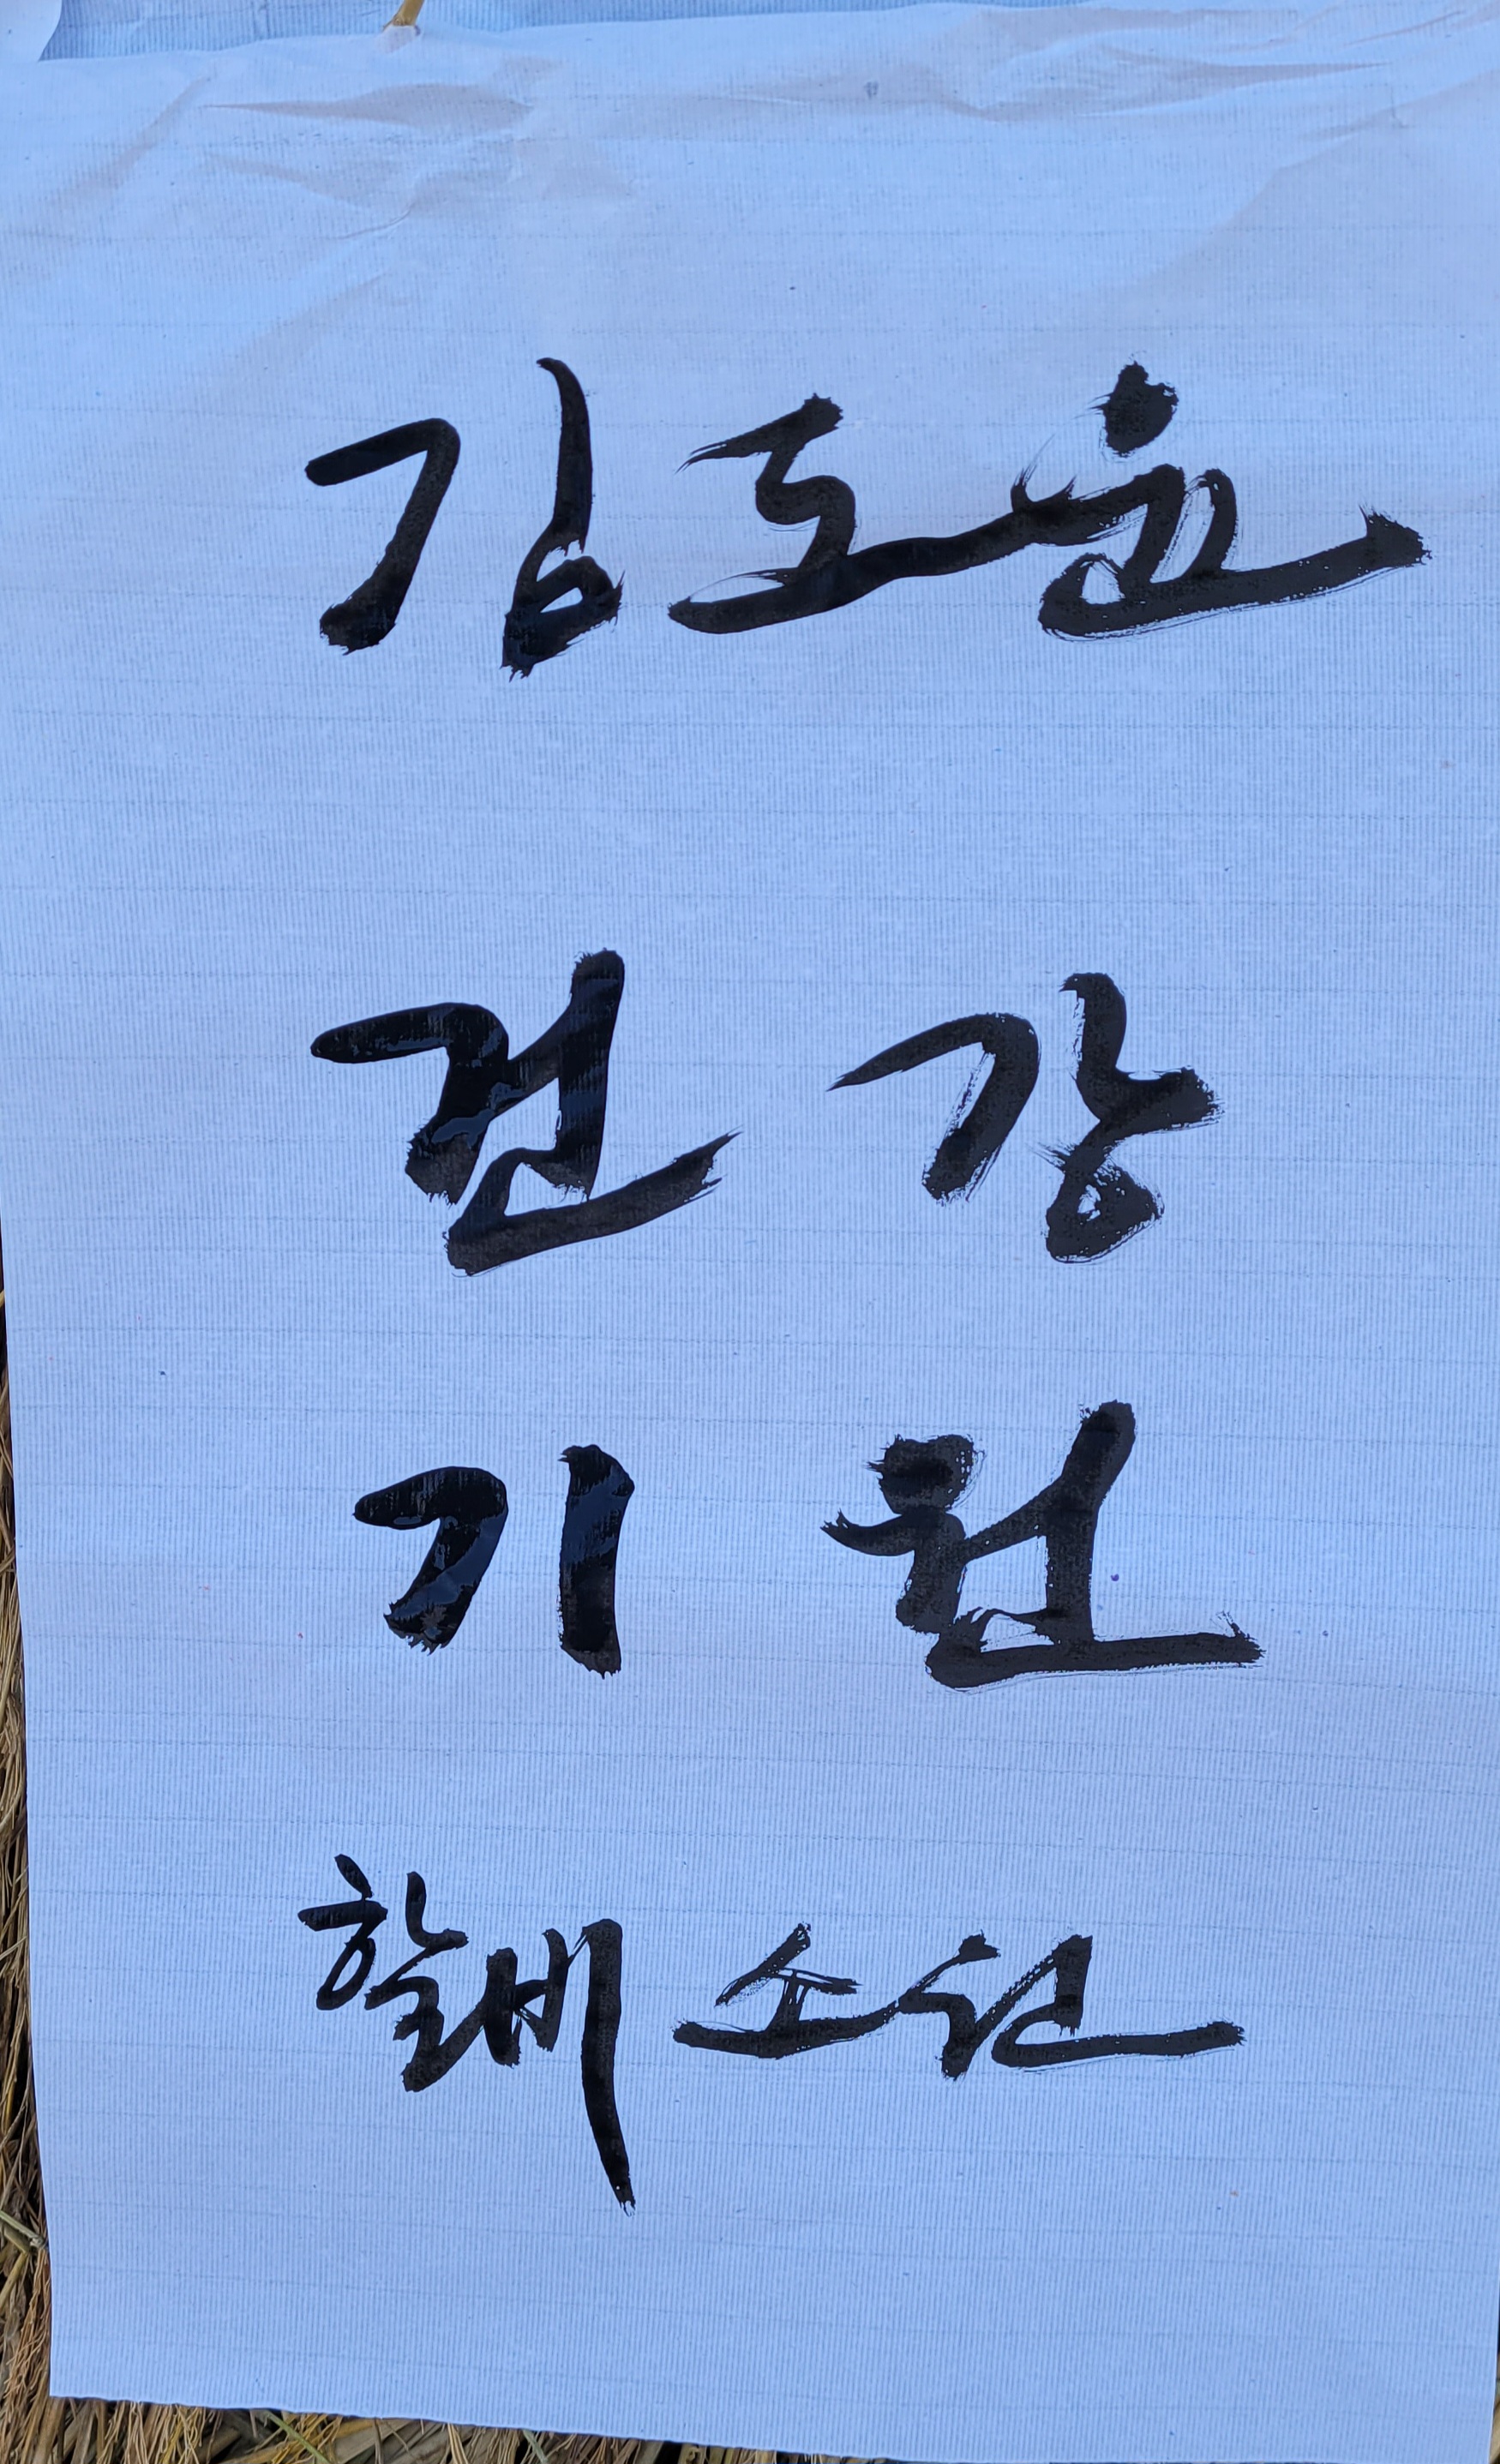 김도윤
건강
기원
할배 소원